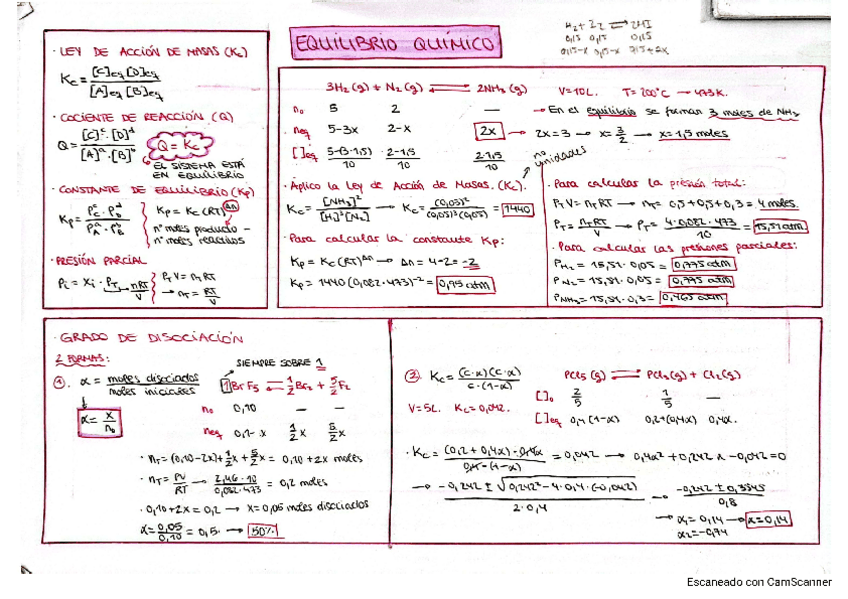 EQUILIBRIO QUÍMICO
H₂ + I₂ ⇌ 2HI
0,15 0,15 0,15
· LEY DE ACCIÓN DE MASAS (Kc)
Kc = [C]eq [D]eq / [A]eq [B]eq
· COCIENTE DE REACCIÓN (Q)
Q = [C]ᶜ · [D]ᵈ / [A]ᵃ · [B]ᵇ
Q = Kc
EL SISTEMA ESTÁ
EN EQUILIBRIO
· CONSTANTE DE EQUILIBRIO (Kp)
Kp = Pᶜc · PᵈD / PᵃA · PᵇB
Kp = Kc (RT)^Δn
nº moles producto –
nº moles reactivos
· PRESIÓN PARCIAL
Pi = Xi · PT → nRT/V
PT V = nT RT
→ nT = RT/V
3H₂ (g) + N₂ (g) ⇌ 2NH₃ (g) V = 10L. T = 200°C → 473K.
n₀ 5 2 —
→ En el equilibrio se forman 3 moles de NH₃
neq 5-3x 2-x 2x → 2x = 3 → x = 3/2 → x = 1,5 moles
[ ]eq 5-(3·1,5)/10 2-1,5/10 2·1,5/10
no unidades
· Aplico la Ley de Acción de Masas. (Kc).
Kc = [NH₃]² / [H]³[N₂] Kc = (0,03)² / (0,05)³(0,05) = 1440
· Para calcular la constante Kp:
Kp = Kc (RT)^Δn → Δn = 4-2 = -2
Kp = 1440 (0,082·473)⁻² = 0,95 atm
· Para calcular la presión total:
PT V = nT RT → nT = 0,5 + 0,5 + 0,3 = 4 moles
PT = nT RT / V → PT = 4·0,082·473 / 10 = 15,51 atm
· Para calcular las presiones parciales:
PH₂ = 15,51 · 0,05 = 0,775 atm
PN₂ = 15,51 · 0,05 = 0,775 atm
PNH₃ = 15,51 · 0,3 = 0,465 atm
· GRADO DE DISOCIACIÓN
2 FORMAS:
SIEMPRE SOBRE 1
①. α = moles disociados / moles iniciales
α = x/n₀
1BrF₅ ⇌ 1/2 Br₂ + 5/2 F₂
n₀ 0,10 — —
neq 0,1 - x 1/2 x 5/2 x
· nT = (0,10-2x) + 1/2 x + 5/2 x = 0,10 + 2x moles
· nT = PV/RT → 2,46 · 10 / 0,082·473 = 0,2 moles
· 0,10+2x = 0,2 → x = 0,05 moles disociados
α = 0,05/0,10 = 0,5. → 50%
②. Kc = (c·x)(c·x) / c·(1-x)
PCl₅ (g) ⇌ PCl₃ (g) + Cl₂ (g)
[ ]₀ 2/5 1/5 —
V = 5L. Kc = 0,042.
[ ]eq 0,4 (1-α) 0,2+(0,4α) 0,4α.
· Kc = (0,2 + 0,4α) · 0,4α / 0,4 · (1-α) = 0,042 → 0,4α² + 0,242 α - 0,042 = 0
→ -0,242 ± √0,242² - 4·0,4·(-0,042) / 2·0,4 → -0,242 ± 0,3545 / 0,8
→ α₁ = 0,14 → α = 0,14
α₂ = -0,74
Escaneado con CamScanner